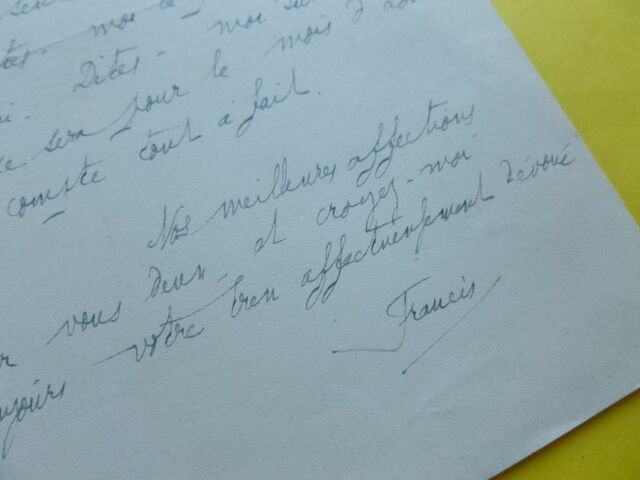 moi
Dites - moi
sera pour le mois d'
compte tout à fait.
Nos meilleures affections
vous deux et croyez-moi
votre bien affectueusement dévoué
Francis